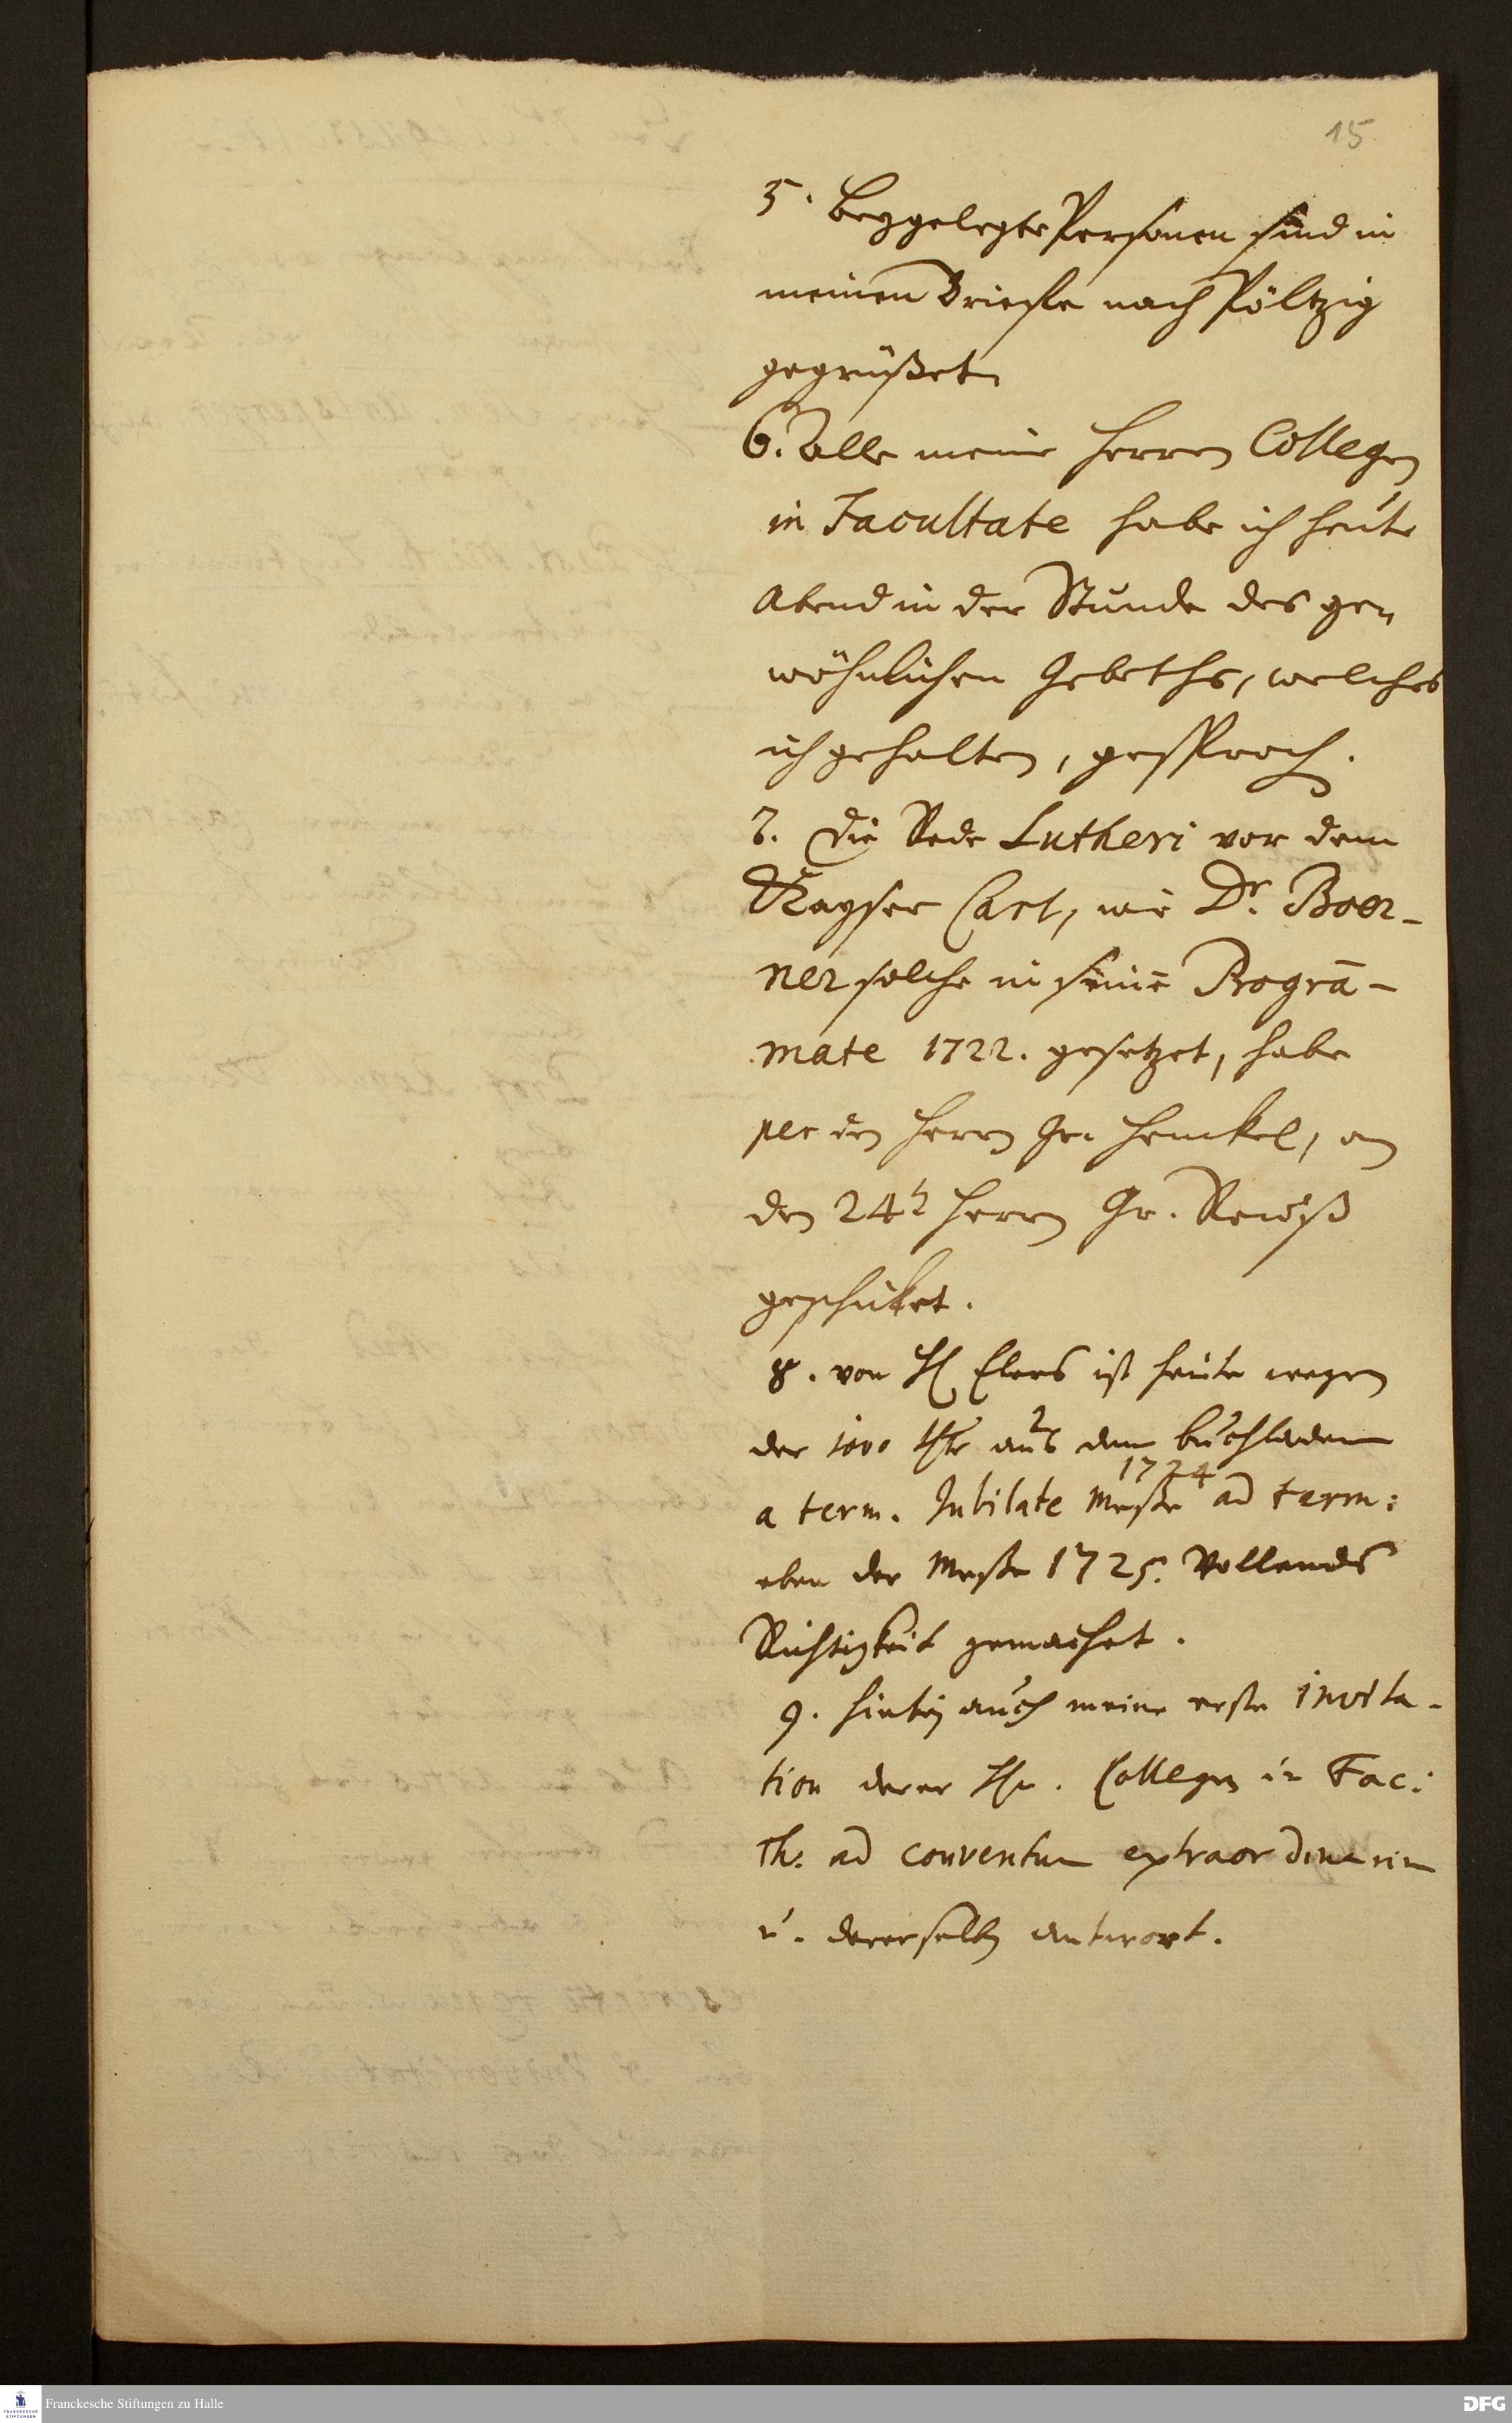 15
5. Beygelegte Personen sind in
meinen Brieffe nach Pöltzig
gegrüßet.
6. Alle meine Herren Collegen
in Facultate habe ich heute
Abend in der Stunde des ge-
wöhnlichen Gebeths, welches
ich gehalten, gesproch.
7. Die Rede Lutheri vor dem
Kayser Carl, wie Dr. Boer-
ner solche in seinē Progrā-
mate 1722. gesetzet, habe
per den Herrn Gr. Henckel, an
den 24t Herrn Gr. Reuß
geschicket.
8. von H Elers ist heute wegen
der 1000 thlr aus dem buchladen
a term. Jubilate Meße 1724 ad term:
eben der Meße 1725. Vollends
Richtigkeit gemachet.
9. hiebey auch meine erste invita-
tion derer Hn. Collegen in Fac:
Th: ad conventum extraordinarium
u. dererselben antwort.
Franckesche Stiftungen zu Halle
DFG